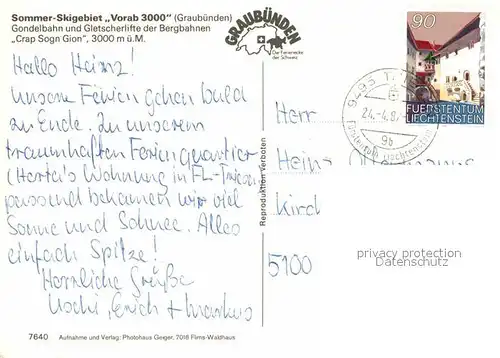 Sommer-Skigebiet „Vorab 3000" (Graubünden)
Gondelbahn und Gletscherlifte der Bergbahnen
„Crap Sogn Gion", 3000 m ü.M.
Hallo Heinz!
Unsere Ferien gehen bald
zu Ende. Zu unserem
traumhaften Ferienquartier
(Herta's Wohnung in FL-Triesen
passend bekamen wir viel
Sonne und Schnee. Alles
einfach Spitze!
Herzliche Grüße
Uschi, Erich + Markus
7640 Aufnahme und Verlag: Photohaus Geiger, 7018 Flims-Waldhaus
Reproduktion verboten
GRAUBÜNDEN
Die Ferienecke
der Schweiz
90
FÜRSTENTUM
LIECHTENSTEIN
9495
24.-4.8
9b
Fürstentum Liechtenstein
Herr
Heinz
Kirch
5100
privacy protection
Datenschutz